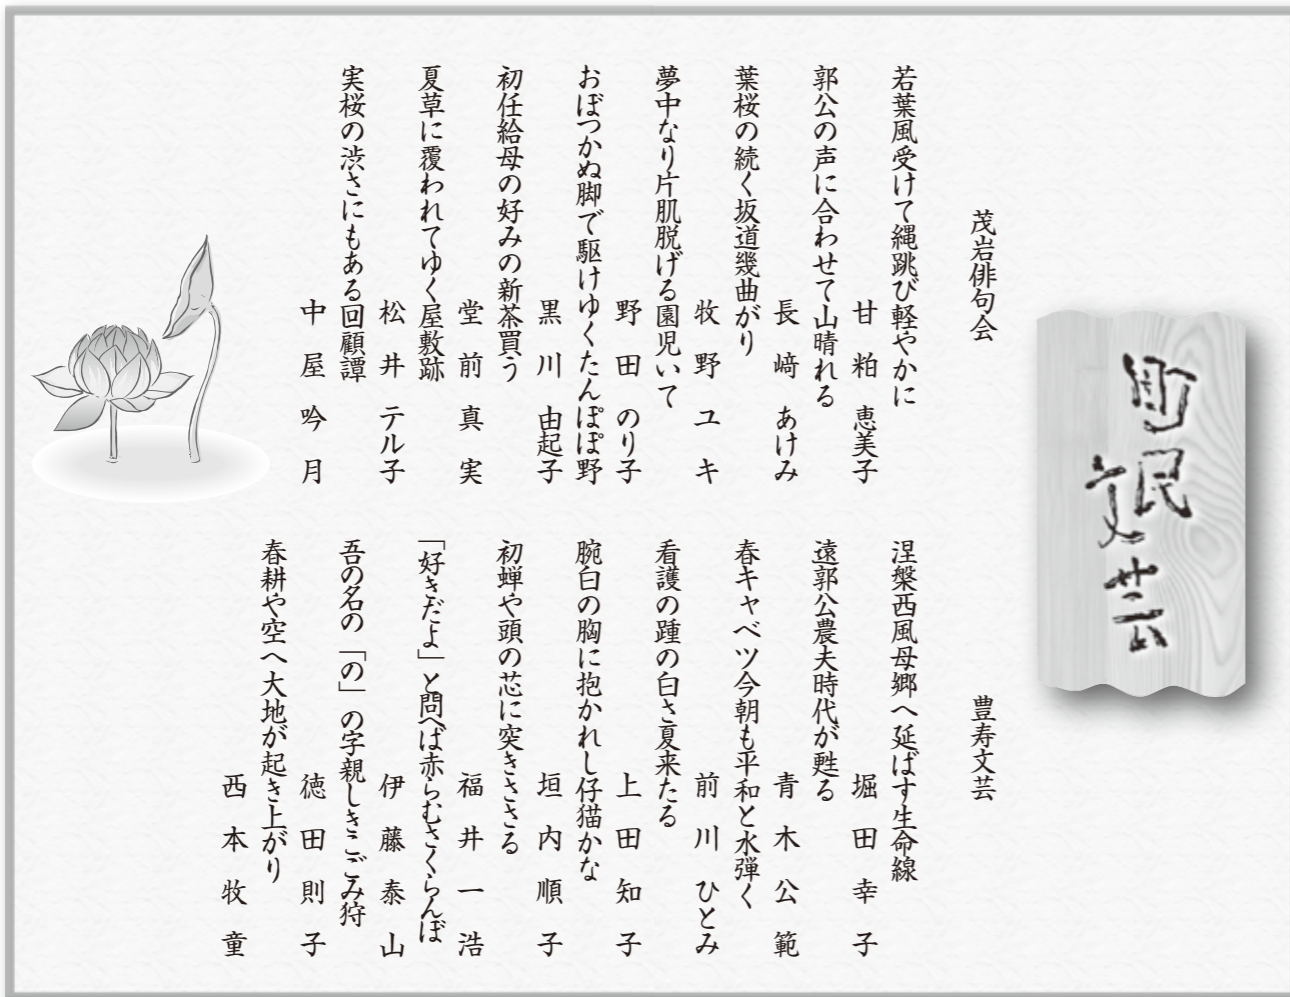 町民文芸
茂岩俳句会
若葉風受けて縄跳び軽やかに
甘粕恵美子
郭公の声に合わせて山晴れる
長﨑あけみ
葉桜の続く坂道幾曲がり
牧野ユキ
夢中なり片肌脱げる園児いて
野田のり子
おぼつかぬ脚で駆けゆくたんぽぽ野
黒川由起子
初任給母の好みの新茶買う
堂前真実
夏草に覆われてゆく屋敷跡
松井テル子
実桜の渋さにもある回顧譚
中屋吟月
豊寿文芸
涅槃西風母郷へ延ばす生命線
堀田幸子
遠郭公農夫時代が甦る
青木公範
春キャベツ今朝も平和と水弾く
前川ひとみ
看護の踵の白さ夏来たる
上田知子
腕白の胸に抱かれし仔猫かな
垣内順子
初蝉や頭の芯に突きささる
福井一浩
「好きだよ」と問へば赤らむさくらんぼ
伊藤泰山
吾の名の「の」の字親しきこごみ狩
徳田則子
春耕や空へ大地が起き上がり
西本牧童